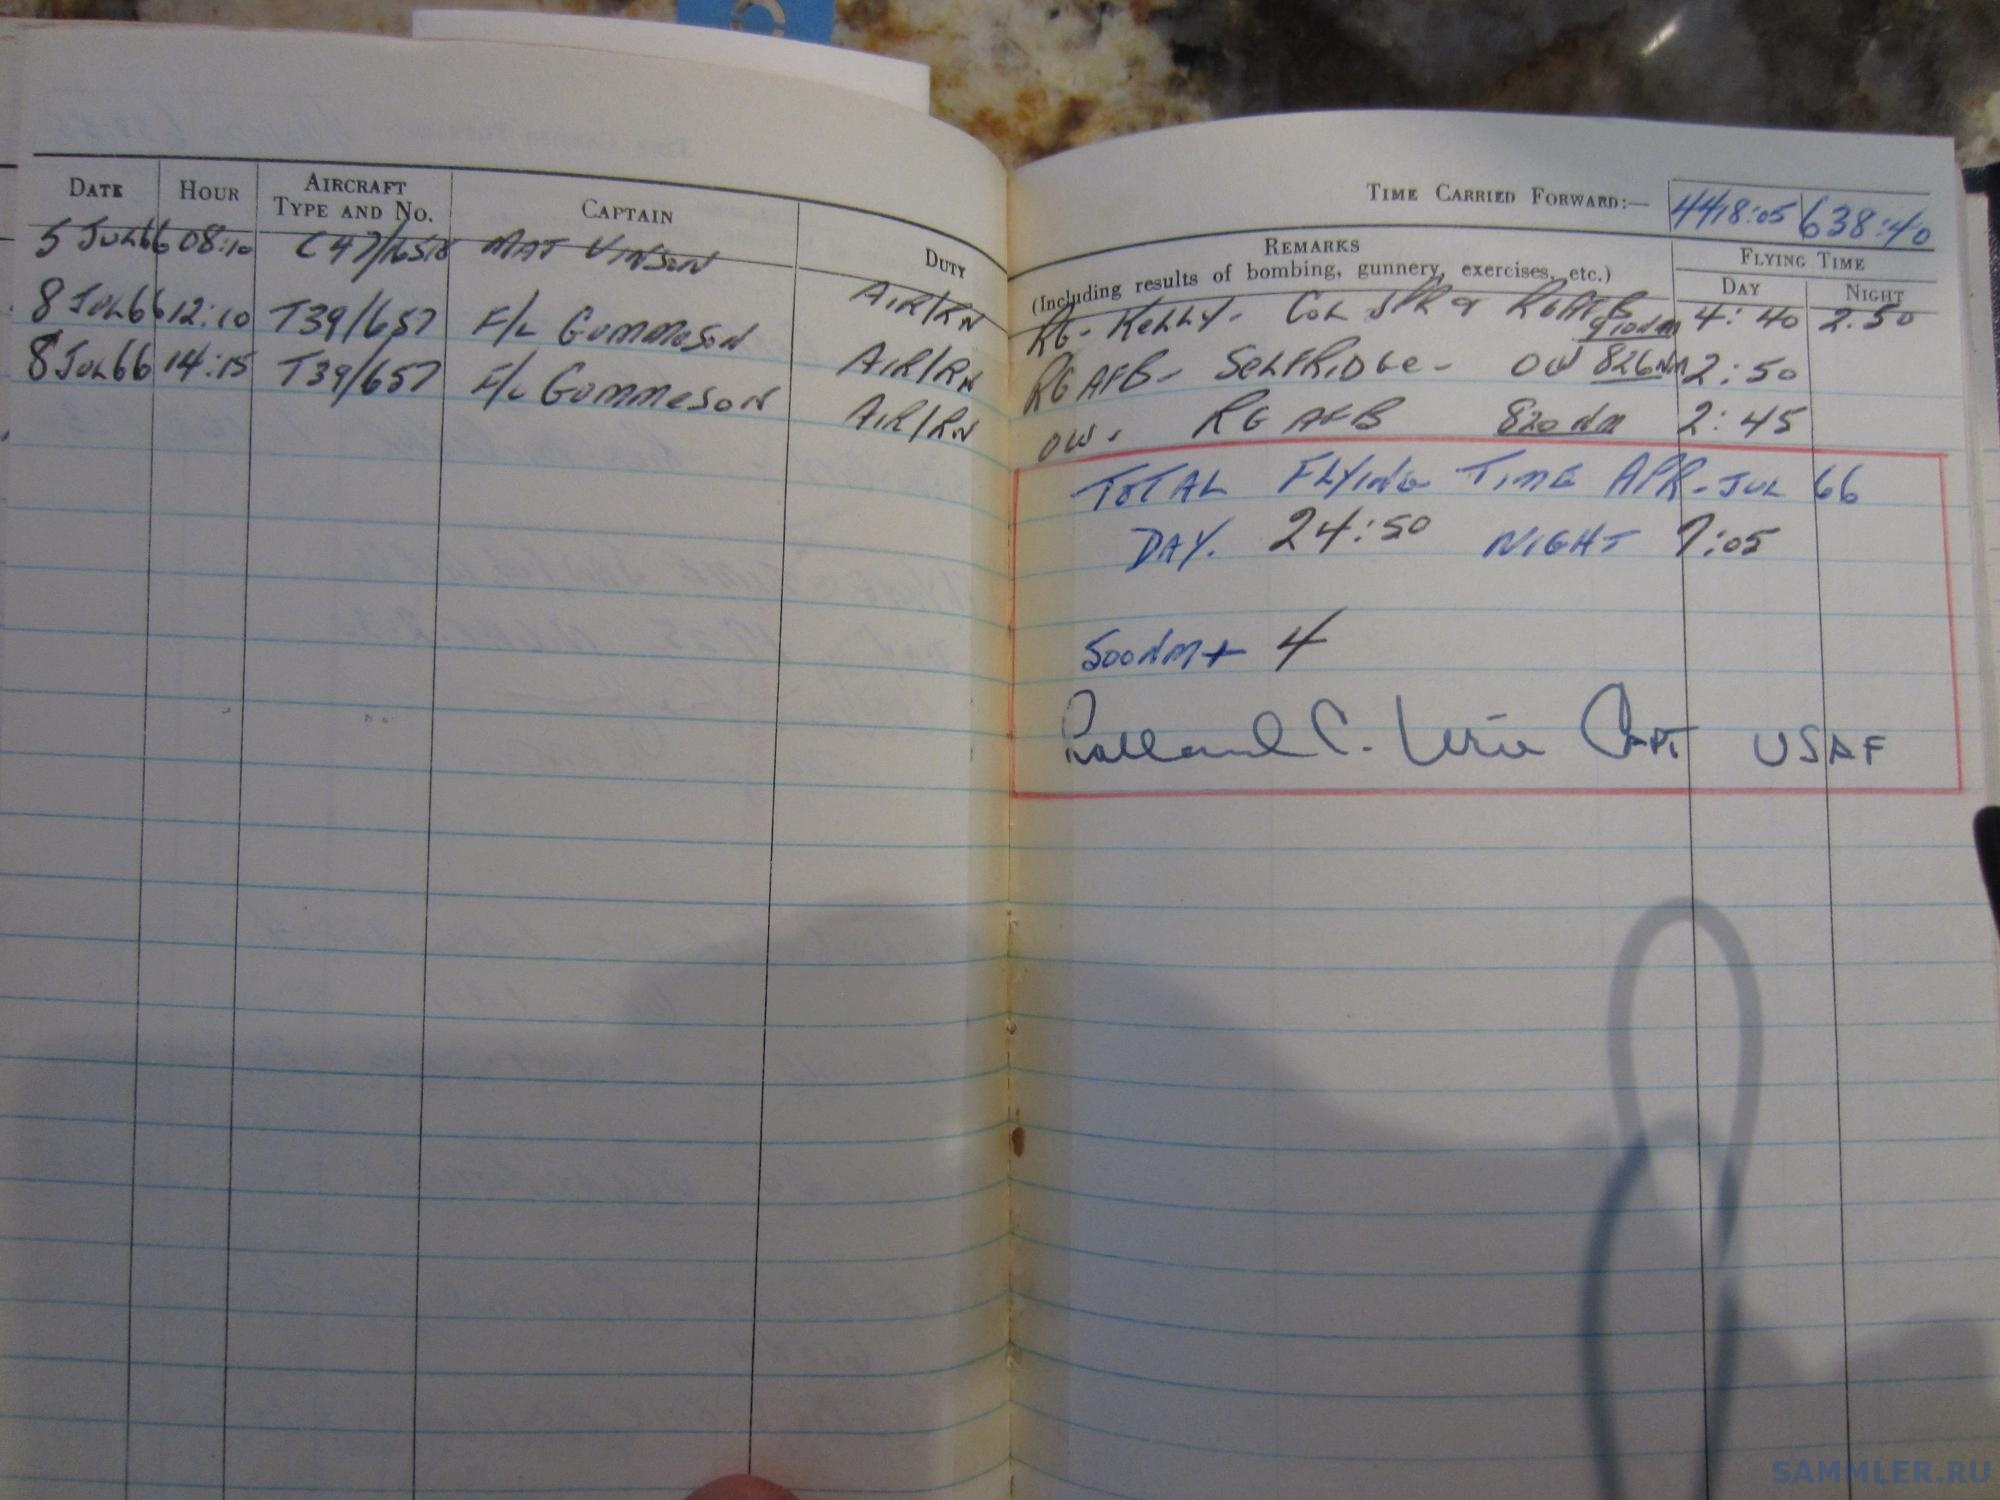 DATE HOUR AIRCRAFT TYPE AND NO. CAPTAIN DUTY
5 JUL 66 08:10 C47/ MAJ VINSON AIR/RN
8 JUL 66 12:10 T39/657 F/L GUMMESON AIR/RN
8 JUL 66 14:15 T39/657 F/L GUMMESON AIR/RN
TIME CARRIED FORWARD:— 4418:05 638:40
REMARKS
(Including results of bombing, gunnery, exercises, etc.)
FLYING TIME
DAY NIGHT
RG - KELLY - COL RGAFB 910NM 4:40 2:50
RG AFB - SELFRIDGE - OW 826NM 2:50
OW - RG AFB 820NM 2:45
TOTAL FLYING TIME APR - JUL 66
DAY. 24:50 NIGHT 7:05
500NM+ 4
C. CAPT USAF
SAMMLER.RU